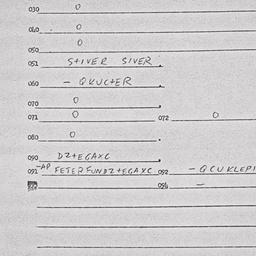 030 0
040 . 0
050 0
051 STIVER SIVER .
060 - QKUCTER .
070 0 .
071 0 . 072 0
080 0 .
090 DZTEGAXC
091 -AP FETERFUNDZTEGAXC 092 - QCUKLEPI
094 -